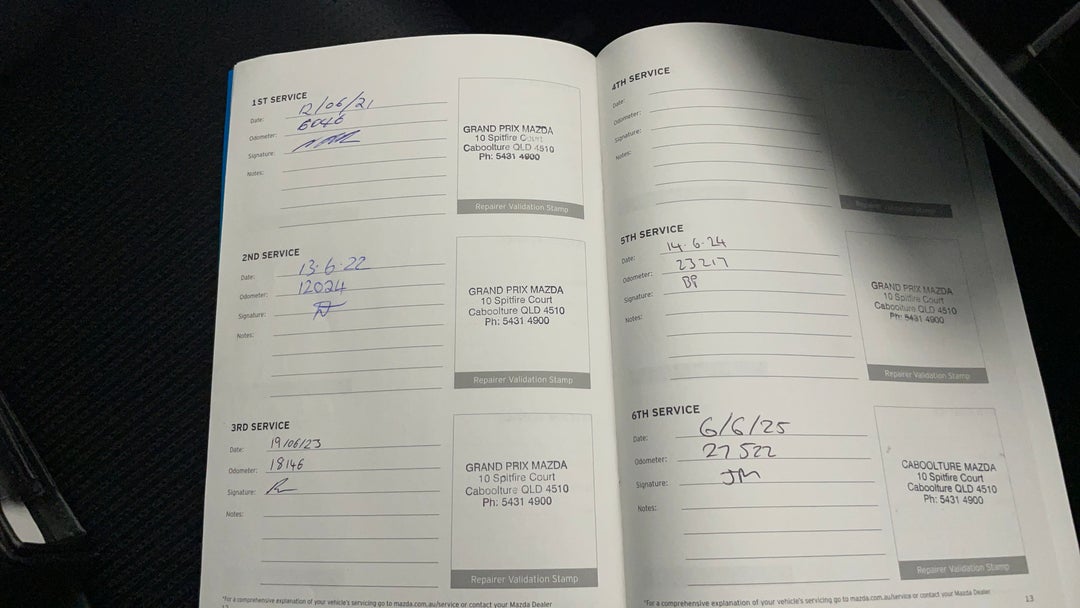 1ST SERVICE
Date: 12/06/21
Odometer: 6046
Signature:
Notes:
GRAND PRIX MAZDA
10 Spitfire Court
Caboolture QLD 4510
Ph: 5431 4900
Repairer Validation Stamp
2ND SERVICE
Date: 13·6·22
Odometer: 12024
Signature:
Notes:
GRAND PRIX MAZDA
10 Spitfire Court
Caboolture QLD 4510
Ph: 5431 4900
Repairer Validation Stamp
3RD SERVICE
Date: 19/06/23
Odometer: 18146
Signature:
Notes:
GRAND PRIX MAZDA
10 Spitfire Court
Caboolture QLD 4510
Ph: 5431 4900
Repairer Validation Stamp
*For a comprehensive explanation of your vehicle's servicing go to mazda.com.au/service or contact your Mazda Dealer
12
4TH SERVICE
Date:
Odometer:
Signature:
Notes:
Repairer Validation Stamp
5TH SERVICE
Date: 14·6·24
Odometer: 23217
Signature:
Notes:
GRAND PRIX MAZDA
10 Spitfire Court
Caboolture QLD 4510
Ph: 5431 4900
Repairer Validation Stamp
6TH SERVICE
Date: 6/6/25
Odometer: 27522
Signature: JM
Notes:
CABOOLTURE MAZDA
10 Spitfire Court
Caboolture QLD 4510
Ph: 5431 4900
Repairer Validation Stamp
*For a comprehensive explanation of your vehicle's servicing go to mazda.com.au/service or contact your Mazda Dealer
13